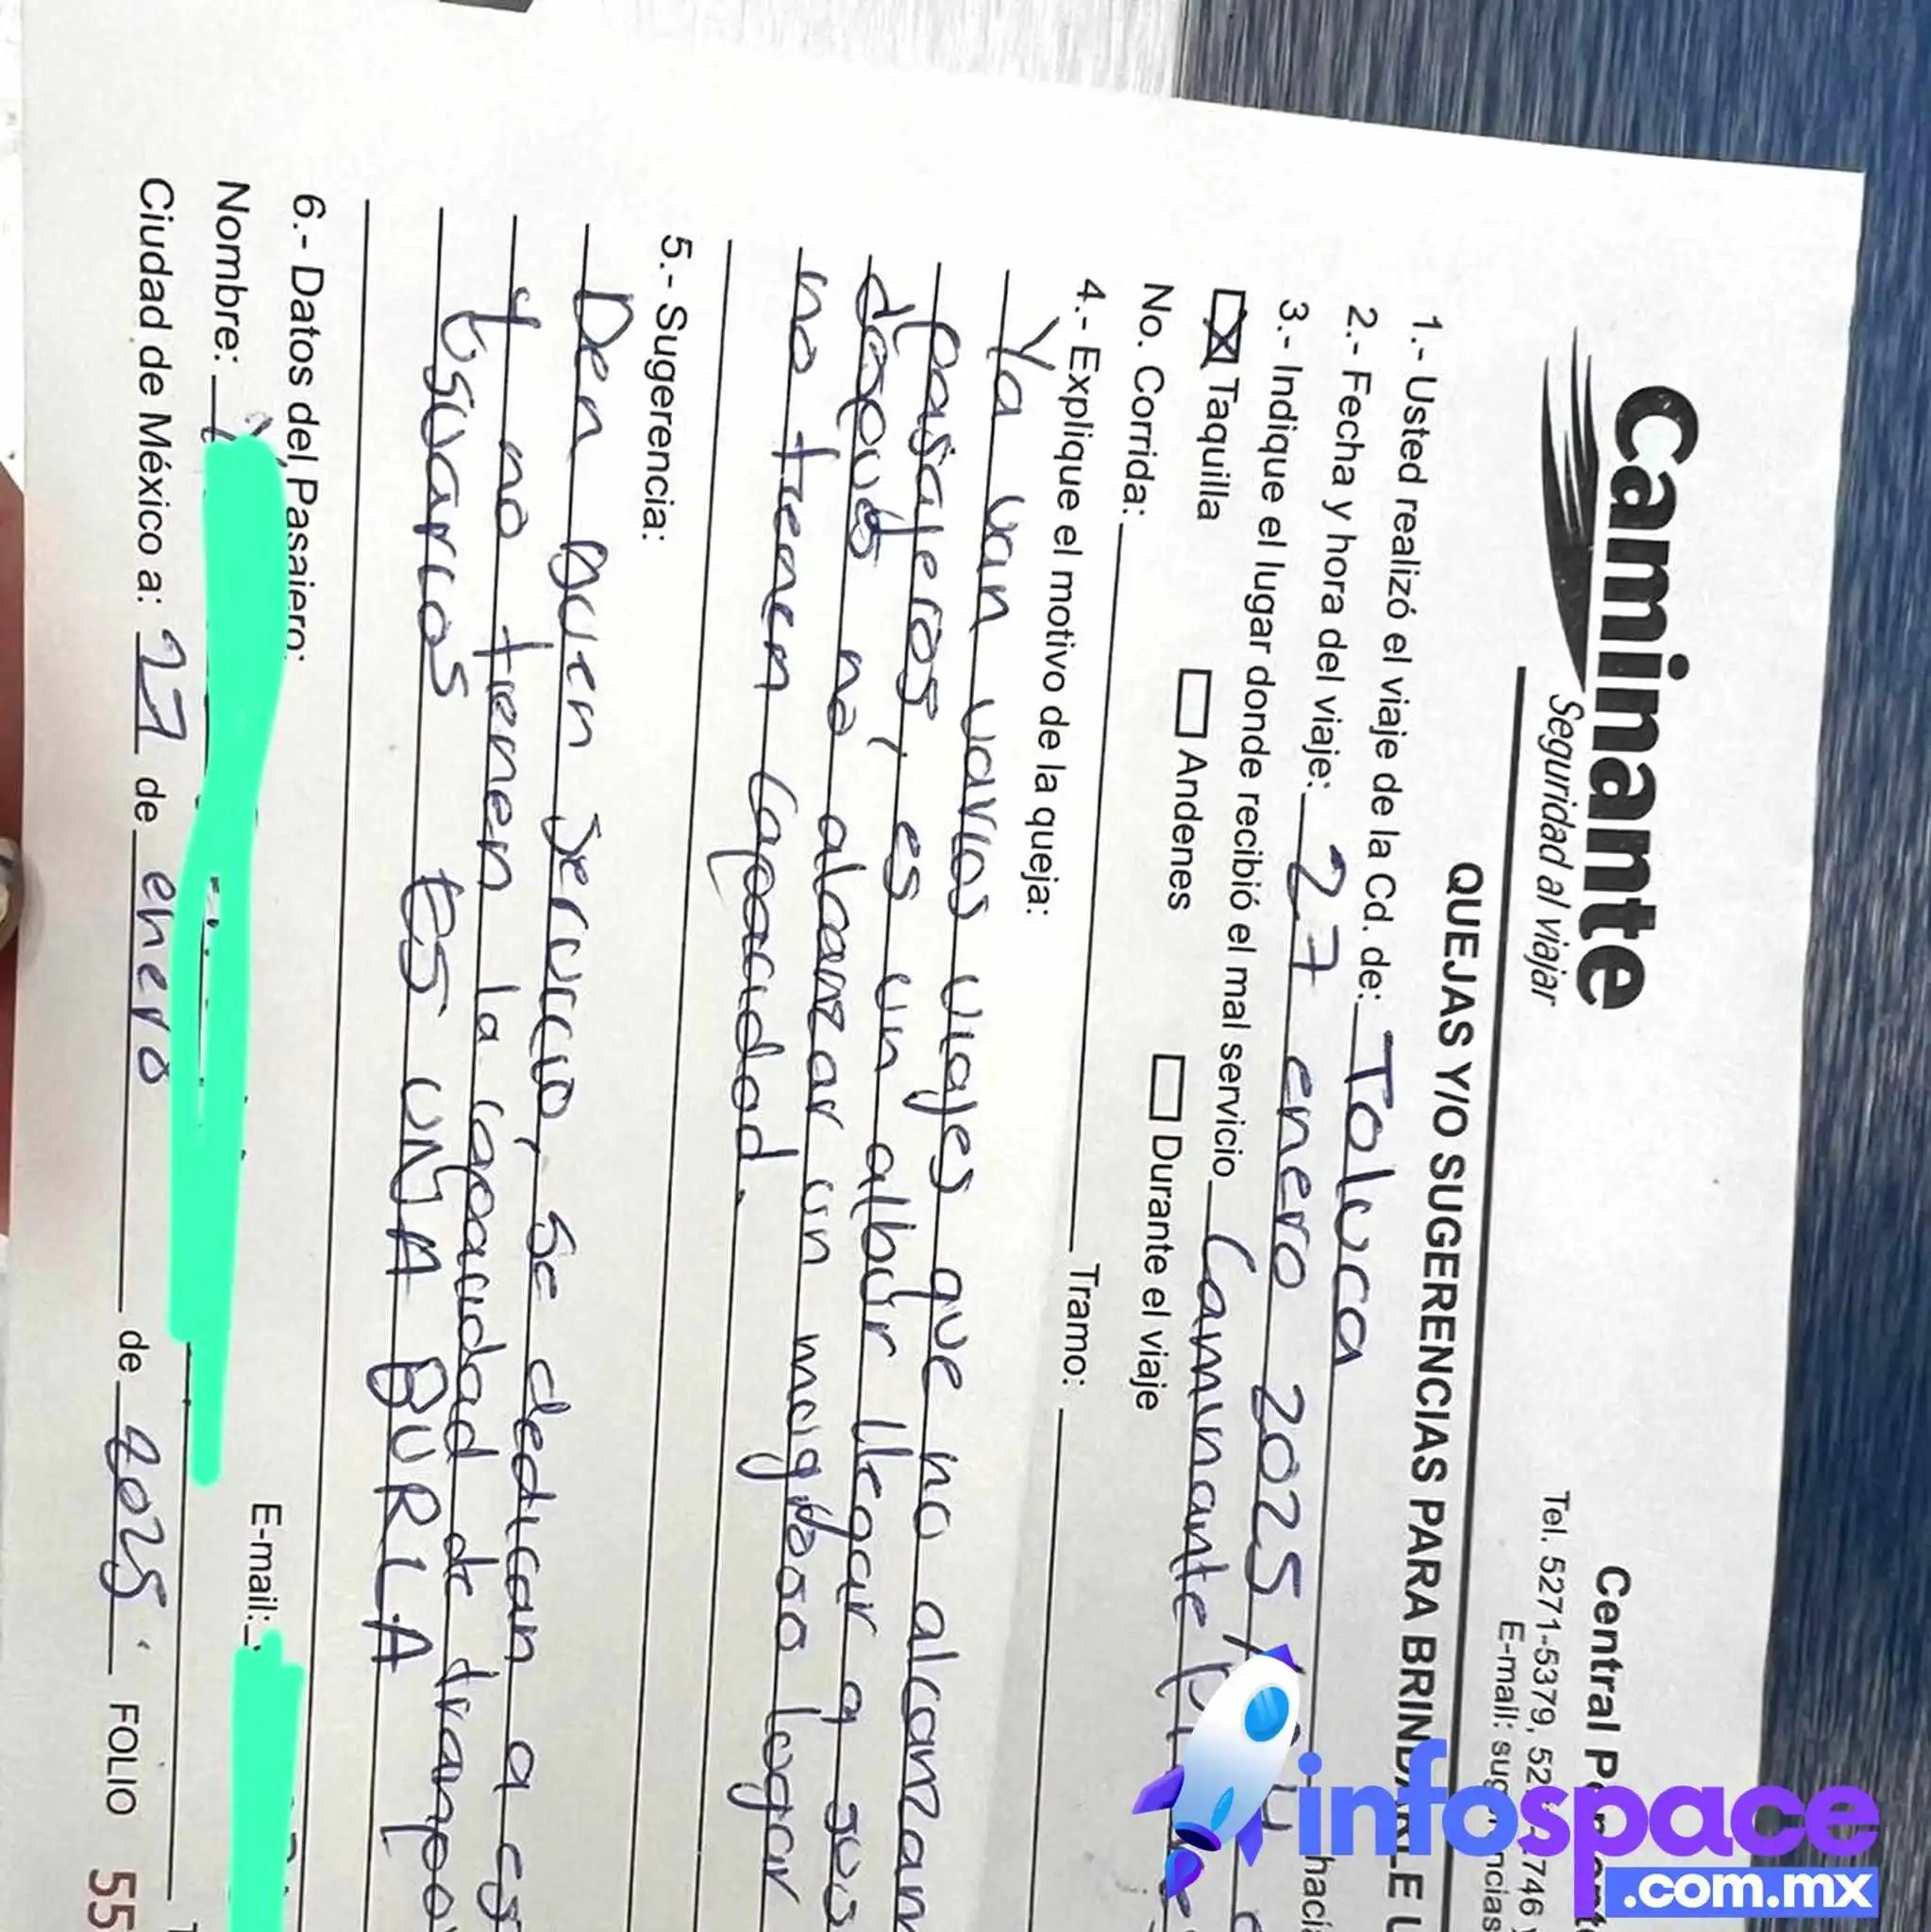 Caminante
Seguridad al viajar
Central
Tel. 5271-5379,
E-mail:
QUEJAS Y/O SUGERENCIAS PARA BRINDARLE
1.- Usted realizó el viaje de la Cd. de: Toluca
2.- Fecha y hora del viaje: 27 enero 2025
3.- Indique el lugar donde recibió el mal servicio Caminante
Taquilla Andenes Durante el viaje
No. Corrida: Tramo:
4.- Explique el motivo de la queja:
Ya van varios viajes que no alcanzan
pasajeros, es un albur llegar a sus
después no alcanzar un lugar
no tienen capacidad.
5.- Sugerencia:
Den buen servicio, se dedican a
y no tienen la capacidad de
usuarios ES UNA BURLA
6.- Datos del Pasajero:
Nombre: E-mail:
Ciudad de México a: 27 de enero de 2025 FOLIO 55
infospace
.com.mx